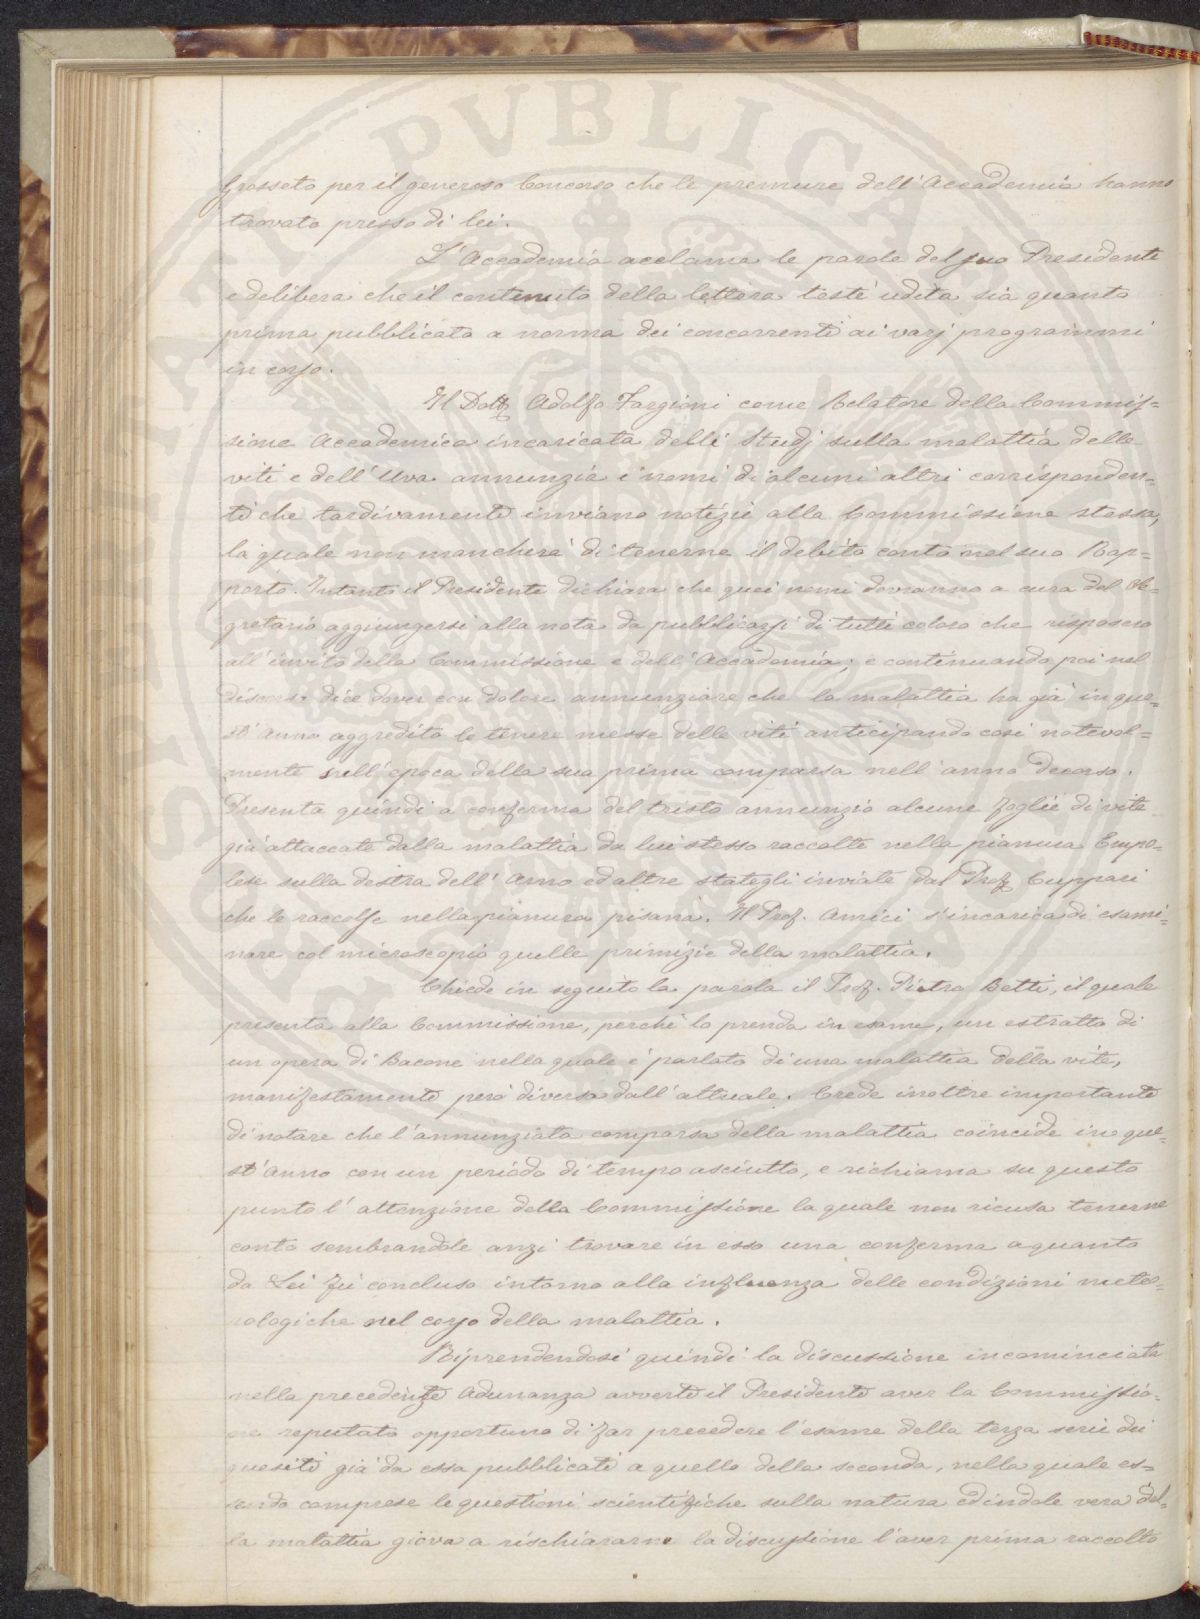 Grosseto per il generoso concorso che le premure dell'Accademia hanno
trovato presso di lei.
L'Accademia acclama le parole del suo Presidente
e delibera che il contenuto della lettera testè udita sia quanto
prima pubblicato a norma dei concorrenti ai varj programmi
in corso.
Il Dott. Adolfo Targioni come Relatore della Commis=
sione Accademica incaricata delli Studj sulla malattia delle
viti e dell'Uva annunzia i nomi di alcuni altri corrisponden=
ti che tardivamente inviano notizie alla Commissione stessa,
la quale non mancherà di tenerne il debito conto nel suo Rap=
porto. Intanto il Presidente dichiara che quei nomi dovranno a cura del Se=
gretario aggiungersi alla nota da pubblicarsi di tutti coloro che risposero
all'invito della Commissione e dell'Accademia; e continuando poi nel
discorso dice dover con dolore annunziare che la malattia ha già in que=
st'anno aggredito le tenere messe delle viti anticipando così notevol=
mente sull'epoca della sua prima comparsa nell'anno decorso.
Presenta quindi a conferma del tristo annunzio alcune foglie di vite
già attaccate dalla malattia da lui stesso raccolte nella pianura Empo=
lese sulla destra dell'Arno ed altre stategli inviate dal Prof. Cuppari
che le raccolse nella pianura pisana. Il Prof. Amici s'incarica di esami=
nare col microscopio quelle primizie della malattia.
Chiede in seguito la parola il Prof. Pietro Betti, il quale
presenta alla Commissione, perchè lo prenda in esame, un estratto di
un opera di Bacone nella quale è parlato di una malattia della vite,
manifestamente però diversa dall'attuale. Crede inoltre importante
di notare che l'annunziata comparsa della malattia coincide in que=
st'anno con un periodo di tempo asciutto, e richiama su questo
punto l'attenzione della Commissione la quale non ricusa tenerne
conto sembrandole anzi trovare in esso una conferma a quanto
da Lei fu concluso intorno alla influenza delle condizioni meteo=
rologiche nel corso della malattia.
Riprendendosi quindi la discussione incominciata
nella precedente Adunanza avverte il Presidente aver la Commissio=
ne reputato opportuno di far precedere l'esame della terza serie dei
quesiti già da essa pubblicati a quello della seconda, nella quale es=
sendo comprese le questioni scientifiche sulla natura ed indole vera del=
la malattia giova a rischiararne la discussione l'aver prima raccolto